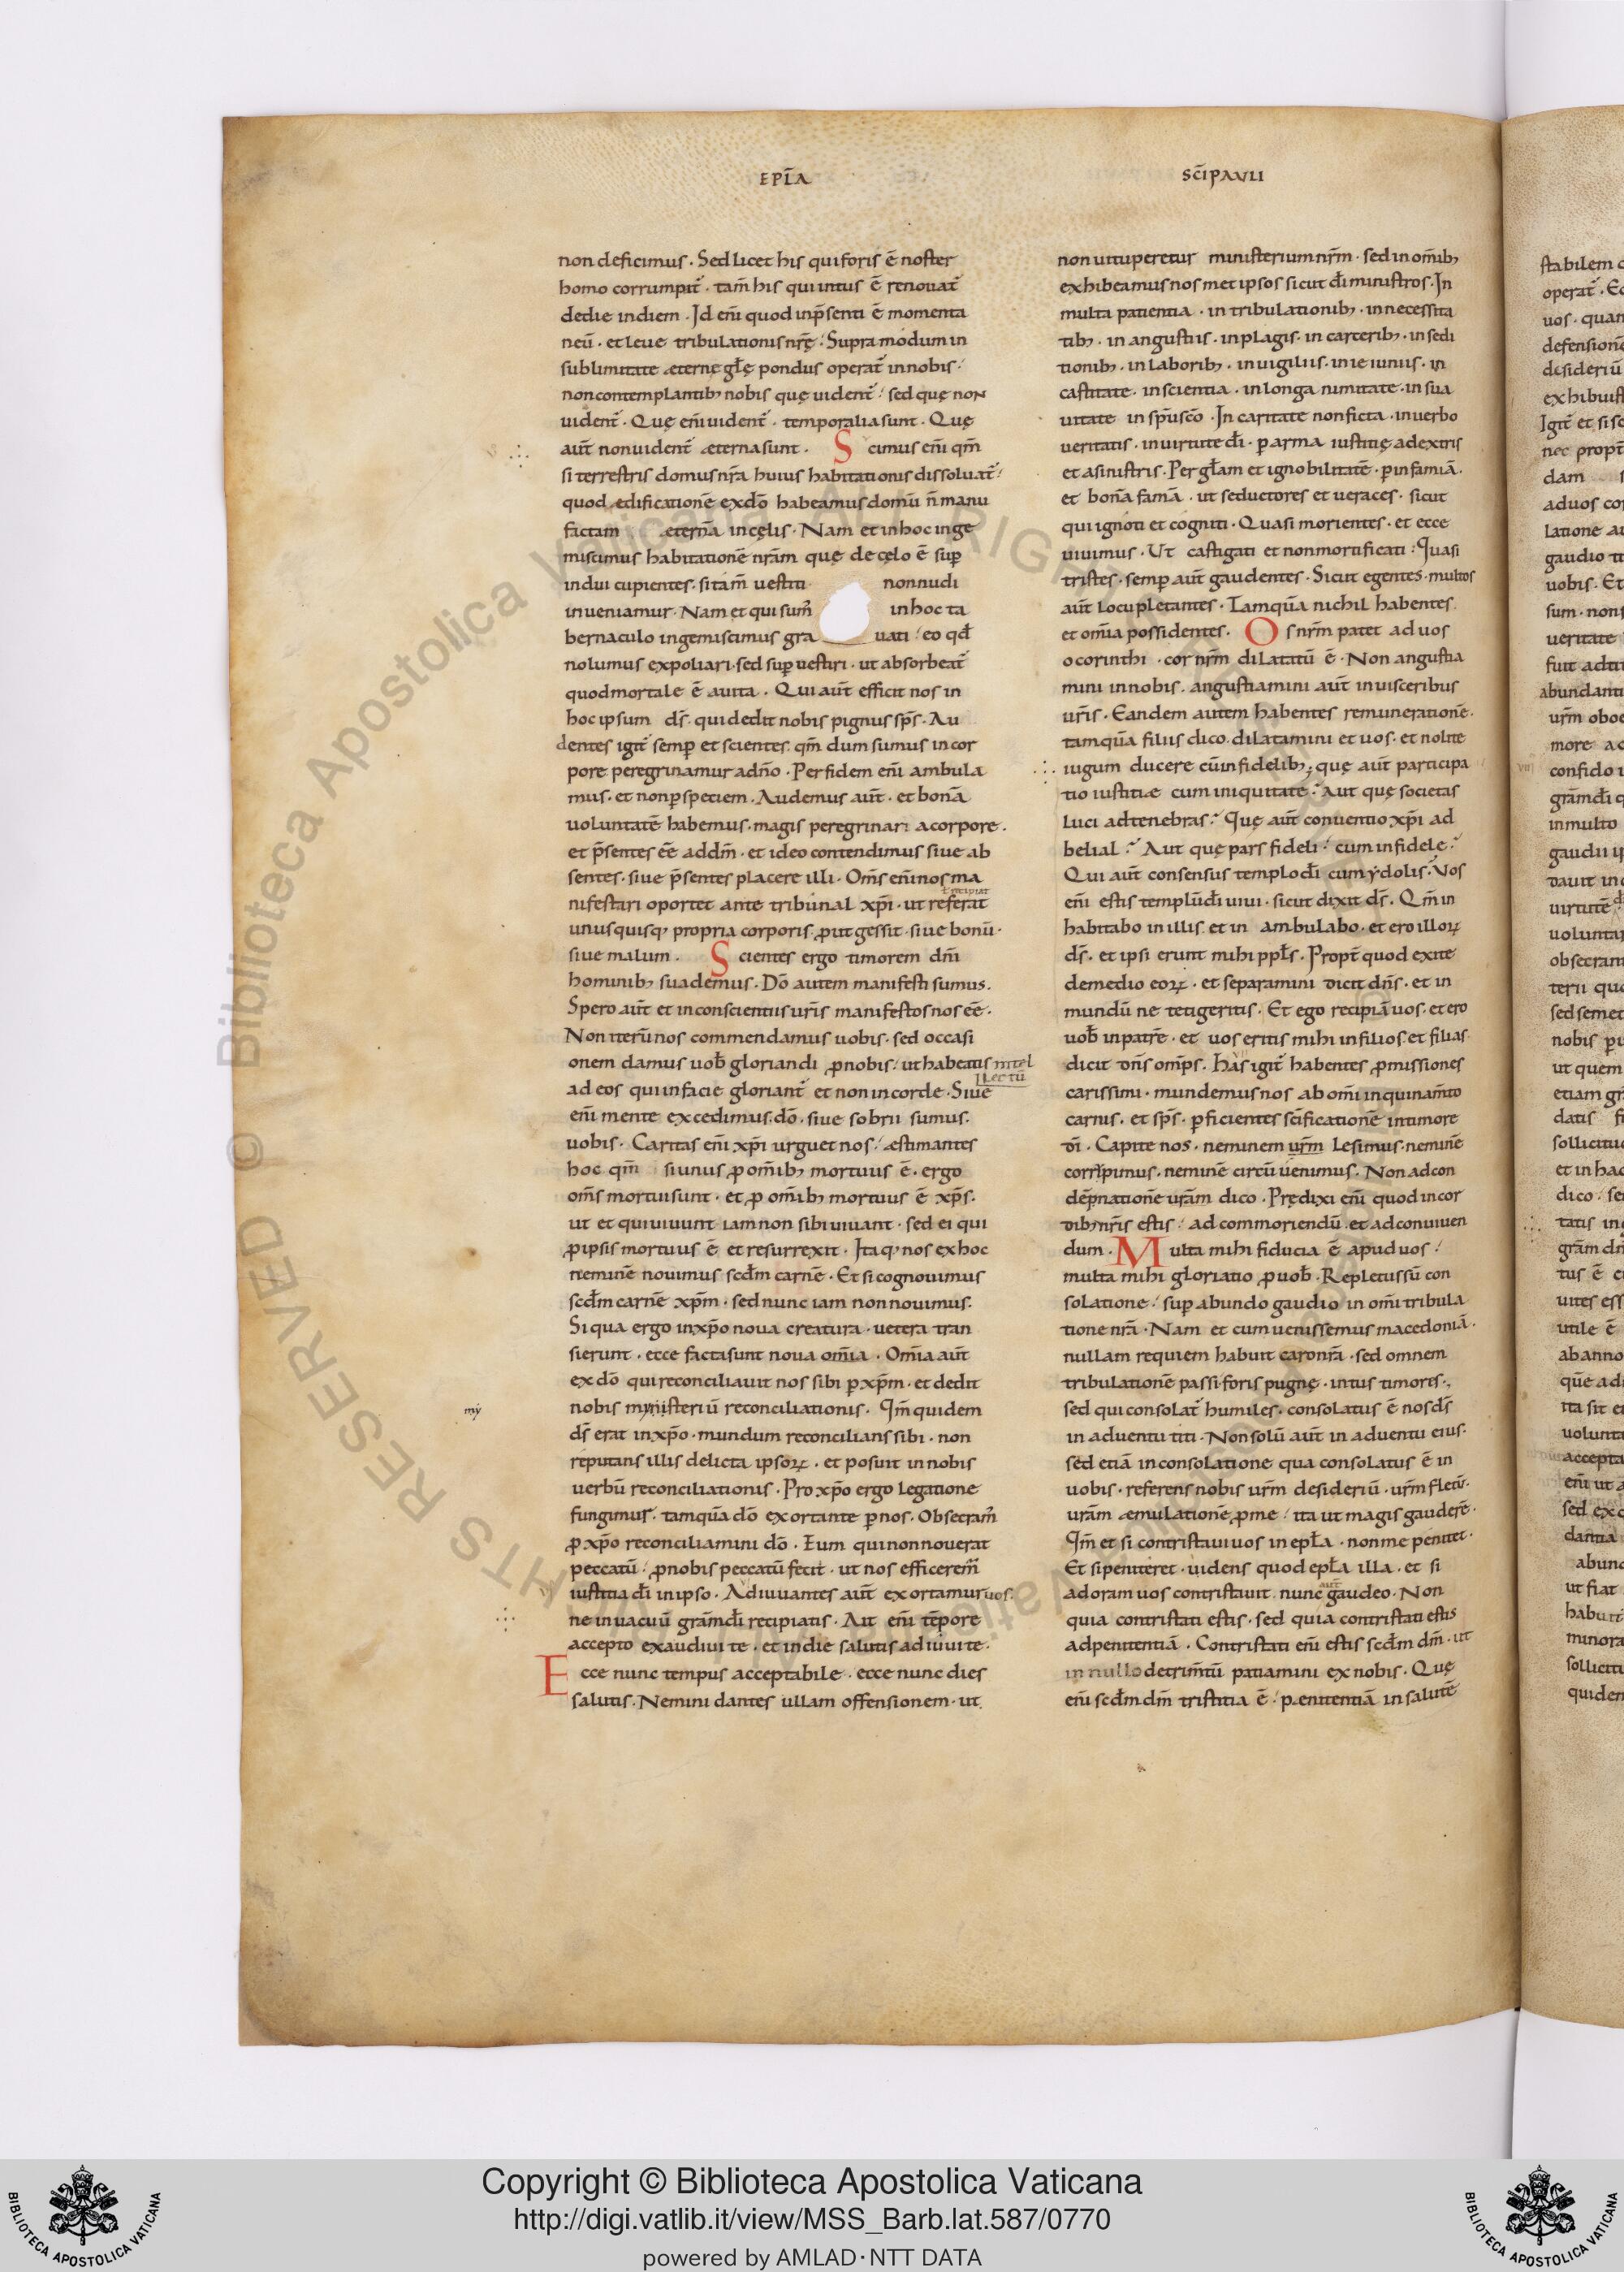 EPL̄A
SCĪ PAVLI
non deficimus . Sed licet his qui foris ē noster
homo corrumpit᷑ . tam̄ his qui intus ē renouat᷑
de die in diem . Id eni̅ quod in p̄senti ē momenta
neū . et leue tribulationis nr̄ę . Supra modum in
sublimitate æternę gl̄ę pondus operat᷑ in nobis .
non contemplantib; nobis quę uident᷑ . sed quę non
uident᷑ . Quę eni̅ uident᷑ . temporalia sunt . Quę
aut̄ non uident᷑ æterna sunt . Scimus eni̅ qm̄
si terrestris domus nr̄a huius habitationis dissoluat᷑ .
quod ædificationē ex dō habeamus domū n̄ manu
factam æternā in cęlis . Nam et in hoc inge
miscimus habitationē nrām quę de cęlo ē sup̄
indui cupientes . si tam̄ uestiti non nudi
inueniamur . Nam et qui sum᷑ in hoc ta
bernaculo ingemiscimus gra uati . eo qd̄
nolumus expoliari . sed sup̄uestiri . ut absorbeat᷑
quod mortale ē a uita . Qui aut̄ efficit nos in
hoc ipsum ds̄ . qui dedit nobis pignus sp̄s . Au
dentes igit᷑ semp̄ et scientes qm̄ dum sumus in cor
pore peregrinamur a dnō . Per fidem eni̅ ambula
mus . et non p̱ speciem . Audemus aut̄ . et bonā
uoluntatē habemus . magis peregrinari a corpore .
et p̄sentes ēē ad dm̄ . et ideo contendimus siue ab
sentes . siue p̄sentes placere illi . Om̄s eni̅ nos ma
ł recipiat
nifestari oportet ante tribunal xp̄i . ut referat
unusquisq; propria corporis ꝓut gessit . siue bonū .
siue malum . Scientes ergo timorem dnī
hominib; suademus . Dō autem manifesti sumus .
Spero aut̄ et in conscientiis ur̄is manifestos nos ēē .
Non iterū nos commendamus uobis . sed occasi
onem damus uob̄ gloriandi ꝓ nobis . ut habeatis intel
lectū
ad eos qui in facie gloriant᷑ et non in corde . Siue
eni̅ mente excedimus dō . siue sobrii sumus .
uobis . Caritas eni̅ xp̄i urguet nos . æstimantes
hoc qm̄ si unus ꝓ om̄ib; mortuus ē . ergo
om̄s mortui sunt . et ꝓ om̄ib; mortuus ē xp̄s .
ut et qui uiuunt iam non sibi uiuant . sed ei qui
ꝓ ipsis mortuus ē et resurrexit . Itaq; nos ex hoc
neminē nouimus scd̄m carnē . Et si cognouimus
scd̄m carnē xp̄m . sed nunc iam non nouimus .
Si qua ergo in xp̄o noua creatura . uetera tran
sierunt . ecce facta sunt noua om̄ia . Om̄ia aut̄
ex dō qui reconciliauit nos sibi p̱ xp̄m . et dedit
nobis mynisteriū reconciliationis . Qm̄ quidem
my
ds̄ erat in xp̄o . mundum reconcilians sibi . non
reputans illis delicta ipsoꝝ . et posuit in nobis
uerbū reconciliationis . Pro xp̄o ergo legatione
fungimus . tamquā dō exortante p̱ nos . Obsecram᷑
ꝓ xp̄o reconciliamini dō . Eum qui non nouerat
peccatū . ꝓ nobis peccatū fecit . ut nos efficerem᷑
iustitia dī in ipso . Adiuuantes aut̄ exortamur uos .
ne in uacuū grām dī recipiatis . Ait eni̅ tēpore
accepto exaudiui te . et in die salutis adiuui te .
Ecce nunc tempus acceptabile . ecce nunc dies
salutis . Nemini dantes ullam offensionem . ut
non uituperetur ministerium nrm̄ . sed in om̄ib;
exhibeamus nos met ipsos sicut dī ministros . In
multa patientia . in tribulationib; . in necessita
tib; . in angustiis . in plagis . in carcerib; . in sedi
tionib; . in laborib; . in uigiliis . in ieiuniis . in
castitate . in scientia . in longanimitate . in sua
uitate in sp̄u scō . In caritate non ficta . in uerbo
ueritatis . in uirtute dī . p̱ arma iustitię a dextris
et a sinistris . Per gl̄am et ignobilitatē . p̱ infamiā .
et bonā famā . ut seductores et ueraces . sicut
qui ignoti et cogniti . Quasi morientes . et ecce
uiuimus . Ut castigati et non mortificati : Quasi
tristes . semp̱ aut̄ gaudentes . Sicut egentes . multos
aut̄ locupletantes . Tamquā nichil habentes
et om̄ia possidentes . Os nrm̄ patet ad uos
o corinthi . cor nrm̄ dilatatū ē . Non angustia
mini in nobis . angustiamini aut̄ in uisceribus
ur̄is . Eandem autem habentes remunerationē .
tamquā filiis dico . dilatamini et uos . et nolite
iugum ducere cū infidelib; . quę aut̄ participa
tio iustitiæ cum iniquitate ? Aut quę societas
luci ad tenebras ? Quę aut̄ conuentio xp̄i ad
belial ? Aut quę pars fideli . cum infidele ?
Qui aut̄ consensus templo dī cum ydolis . Vos
eni̅ estis templū dī uiui . sicut dixit ds̄ . Qm̄ in
habitabo in illis et in ambulabo . et ero illoꝝ
ds̄ . et ipsi erunt mihi ppl̄s . Propt̄ quod exite
de medio eoꝝ . et separamini dicit dn̄s . et in
mundū ne tetigeritis . Et ego recipiā uos . et ero
uob̄ in patrē . et uos eritis mihi in filios et filias
dicit dn̄s om̄ps . Has igit᷑ habentes ꝓmissiones
carissimi . mundemus nos ab om̄i inquinam̄to
carnis . et sp̄s . ꝑficientes sc̄ificationē in timore
dī . Capite nos . neminem urm̄ lesimus . neminē
corripimus . neminē circūuenimus . Non ad con
dēpnationē urām dico . Prędixi eni̅ quod in cor
dib; nr̄is estis . ad commoriendū et ad conuiuen
dum . Multa mihi fiducia ē apud uos .
multa mihi gloriatio ꝓ uob̄ . Repletus sū con
solatione . sup̱abundo gaudio in om̄i tribula
tione nrā . Nam et cum uenissemus macedoniā .
nullam requiem habuit caro nrā . sed omnem
tribulationē passi . foris pugnę . intus timores .
sed qui consolat᷑ humiles . consolatus ē nos ds̄
in aduentu titi . Non solū aut̄ in aduentu eius .
sed etiā in consolatione qua consolatus ē in
uobis . referens nobis urm̄ desideriū . urm̄ fletū .
urām æmulationē ꝓ me . ita ut magis gauderē .
Qm̄ et si contristaui uos in epl̄a . non me penitet .
Et si peniteret . uidens quod epl̄a illa . et si
ad oram uos contristauit . nunc gaudeo . Non
quia contristati estis . sed quia contristati estis
ad penitentiā . Contristati eni̅ estis scd̄m dm̄ . ut
in nullo detrim̄tū patiamini ex nobis . Quę
eni̅ scd̄m dm̄ tristitia ē . pænitentiā in salutē
Copyright © Biblioteca Apostolica Vaticana
http://digi.vatlib.it/view/MSS_Barb.lat.587/0770
powered by AMLAD·NTT DATA
BIBLIOTECA APOSTOLICA VATICANA
BIBLIOTECA APOSTOLICA VATICANA
© Biblioteca Apostolica Vaticana ALL RIGHTS RESERVED